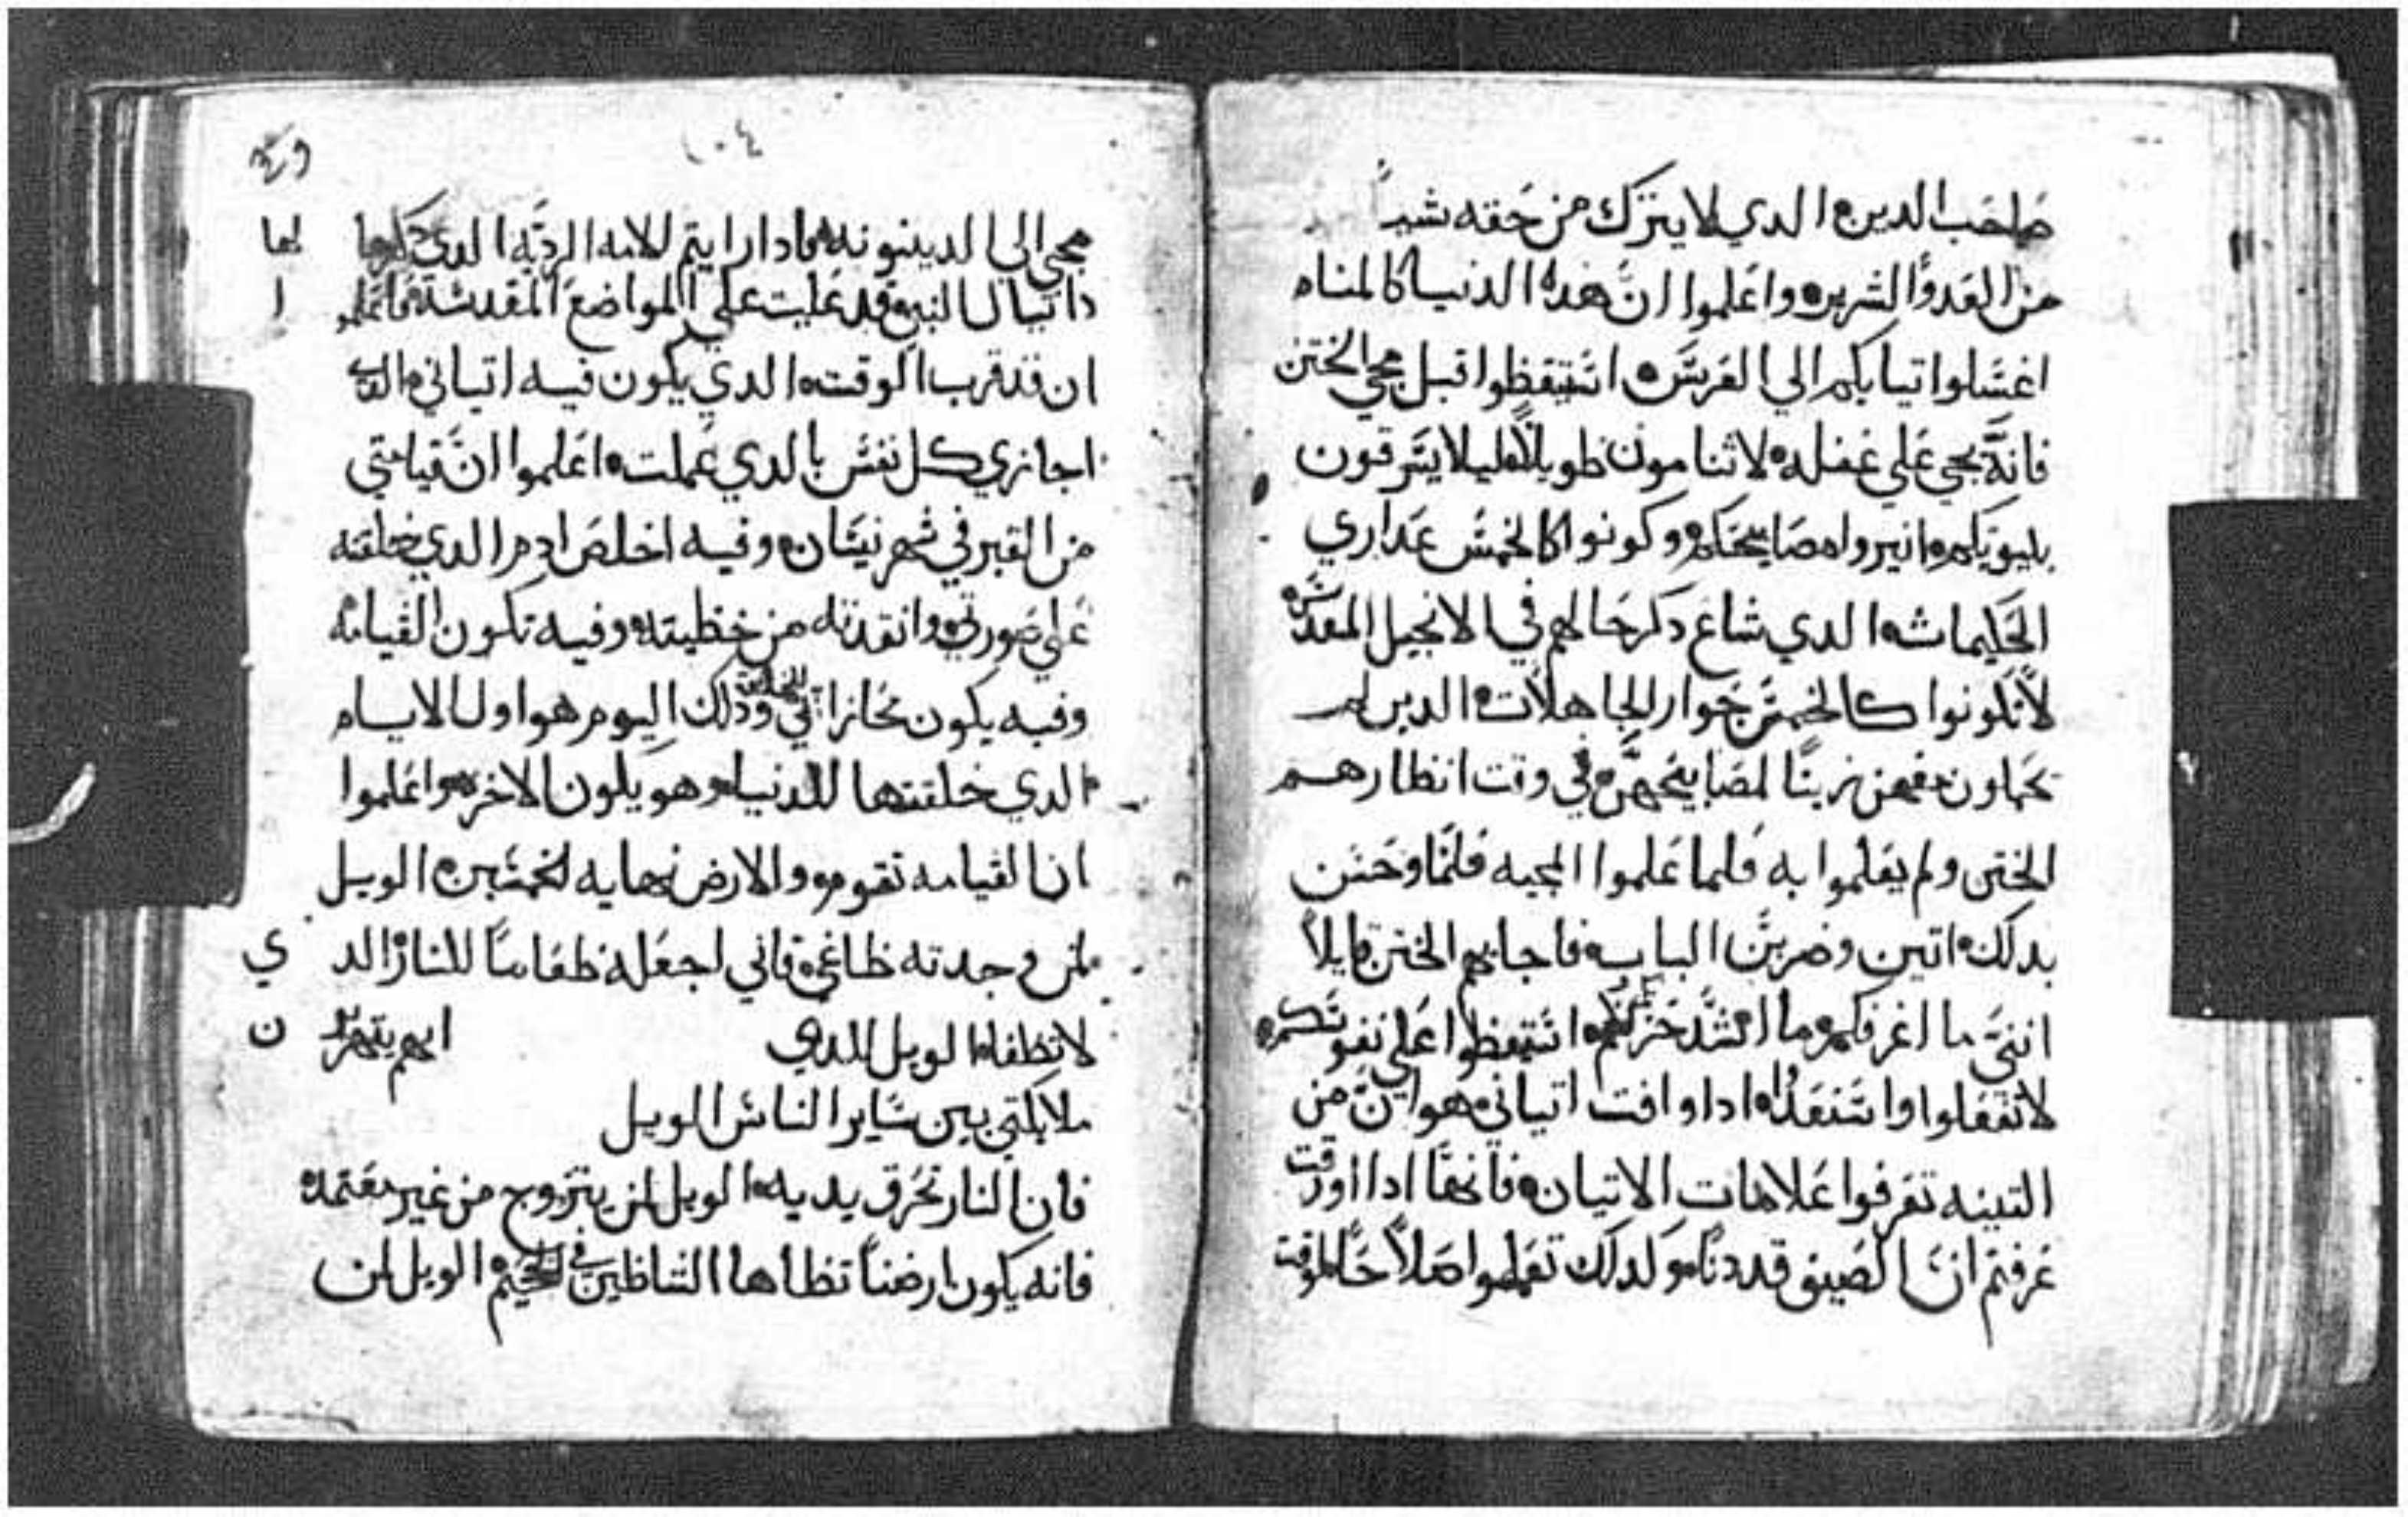 صاحب الدين الدي لا يترك من حقه شياً
من العدو الشرير واعلموا ان هده الدنيا كالمناه
اغسلوا تيابكم الي العريس استيقظوا قبل مجي الختن
فانه يجي علي غفله لا تنامون طويلاً ليلا يسرقون
بليوتكم انيروا مصابيحكم وكونوا كالخمس عداري
الحكيمات الدي شاع دكرحالهم في الانجيل المقدس
لا تكونوا كالخمس جوار الجاهلات الدين لم
تحملون معهن زيتاً لمصابيحهن في وقت انتظارهم
الختن ولم يعلموا به فلما علموا المجيه فلما وحسن
بدلك اتين وضربن الباب فاجابهم الختن قايلاً
انني ما اعرفكم ما اشد حزنكم استيقظوا علي نفوسكم
لا تغفلوا واستعدوا ادا وافت اتياني هوا ان من
التينه تعرفوا علامات الاتيان فانها ادا اورقت
عرفتم ان الصيف قد دنا ولدلك تعلموا
مجي الي الدينونه فادا رايتم الامه الرديه الدي دكرها لها
دانيال النبي قد عليت علي المواضع المقدسة فاعلمو ا
ان قد قرب الوقت الدي يكون فيه اتياني الدي
اجازي كل نفس بالدي عملت اعلموا ان قيامتي
من القبر في شهر نيسان وفيه اخلص ادم الدي خلقته
علي صورتي وانقدته من خطيته وفيه تكون القيامه
وفيه يكون مجازاتي للخلايق ودلك اليوم هو اول الايام
الدي خلقتها للدنيا وهو يكون الاخره واعلموا
ان القيامه تقوم والارض نهايه لخمسين الويل
لمن وجدته طاغي فاني اجعله طعاماً للنار الد ي
لا تطفا الويل للدي ايهم يتهر ن
ملايكتي بين ساير الناس الويل
فان النار تحرق يديه الويل لمن يتزوج من غير معتمده
فانه يكون ارضاً تطاها الشياطين في الجحيم الويل لمن
١٠٤